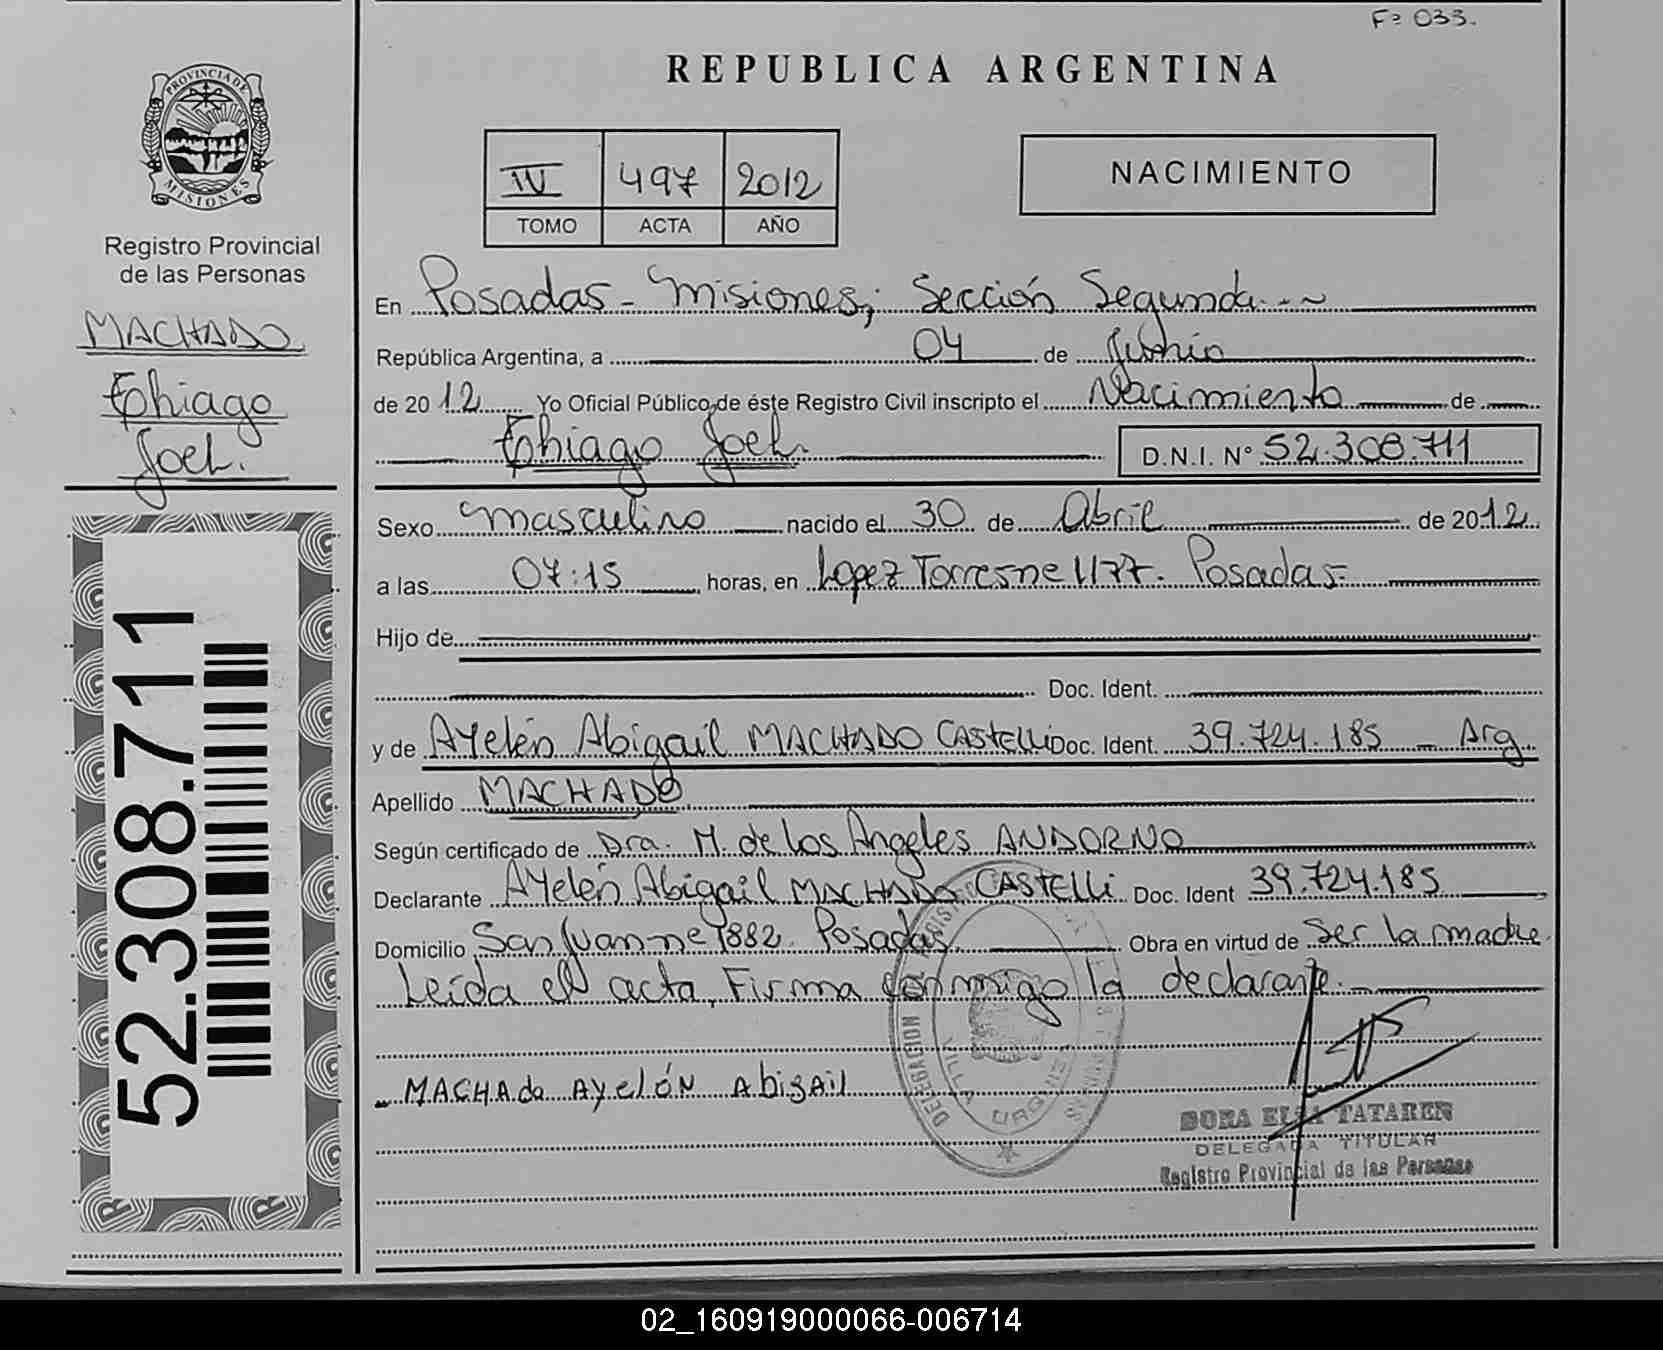 Fº 033.
REPUBLICA ARGENTINA
PROVINCIA DE
MISIONES
Registro Provincial
de las Personas
MACHADO
Thiago
Joel.
52.308.711
IV 497 2012
TOMO ACTA AÑO
NACIMIENTO
En Posadas - Misiones; Sección Segunda
República Argentina, a 04 de Junio
de 2012 Yo Oficial Público de éste Registro Civil inscripto el Nacimiento de
Thiago Joel. D.N.I. N° 52.308.711
Sexo masculino nacido el 30 de Abril de 2012
a las 07:15 horas, en Lopez Torres nº 1177. Posadas.
Hijo de
Doc. Ident.
y de Ayelén Abigail MACHADO CASTELLI Doc. Ident. 39.724.185 - Arg
Apellido MACHADO
Según certificado de Dra. M. de los Angeles ANDORNO
Declarante Ayelén Abigail MACHADO CASTELLI Doc. Ident 39.724.185
Domicilio San Juan nº 1882. Posadas Obra en virtud de Ser la madre.
Leída el acta, Firma conmigo la declarante.
MACHAdo AyelÉN Abigail
DELEGACION
VILLA URQUIZA
DORA ELSA TATAREN
DELEGADA TITULAR
Registro Provincial de las Personas
02_160919000066-006714